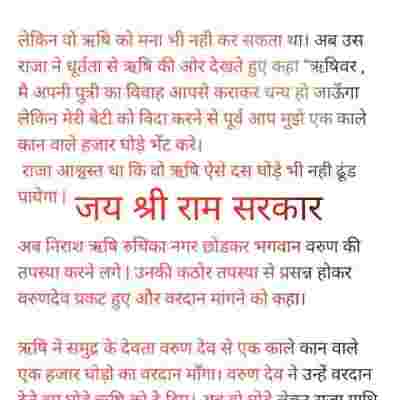 लेकिन वो ऋषि को मना भी नही कर सकता था। अब उस
राजा ने धूर्तता से ऋषि की ओर देखते हुए कहा "ऋषिवर ,
मै अपनी पुत्री का विवाह आपसे कराकर धन्य हो जाऊँगा
लेकिन मेरी बेटी को विदा करने से पूर्व आप मुझे एक काले
कान वाले हजार घोड़े भेंट करे।
राजा आश्वस्त था कि वो ऋषि ऐसे दस घोड़े भी नही ढूंड
पायेगा |
जय श्री राम सरकार
अब निराश ऋषि रुचिका नगर छोडकर भगवान वरुण की
तपस्या करने लगे | उनकी कठोर तपस्या से प्रसन्न होकर
वरुणदेव प्रकट हुए और वरदान मांगने को कहा।
ऋषि ने समुद्र के देवता वरुण देव से एक काले कान वाले
एक हजार घोड़ो का वरदान माँगा। वरुण देव ने उन्हें वरदान